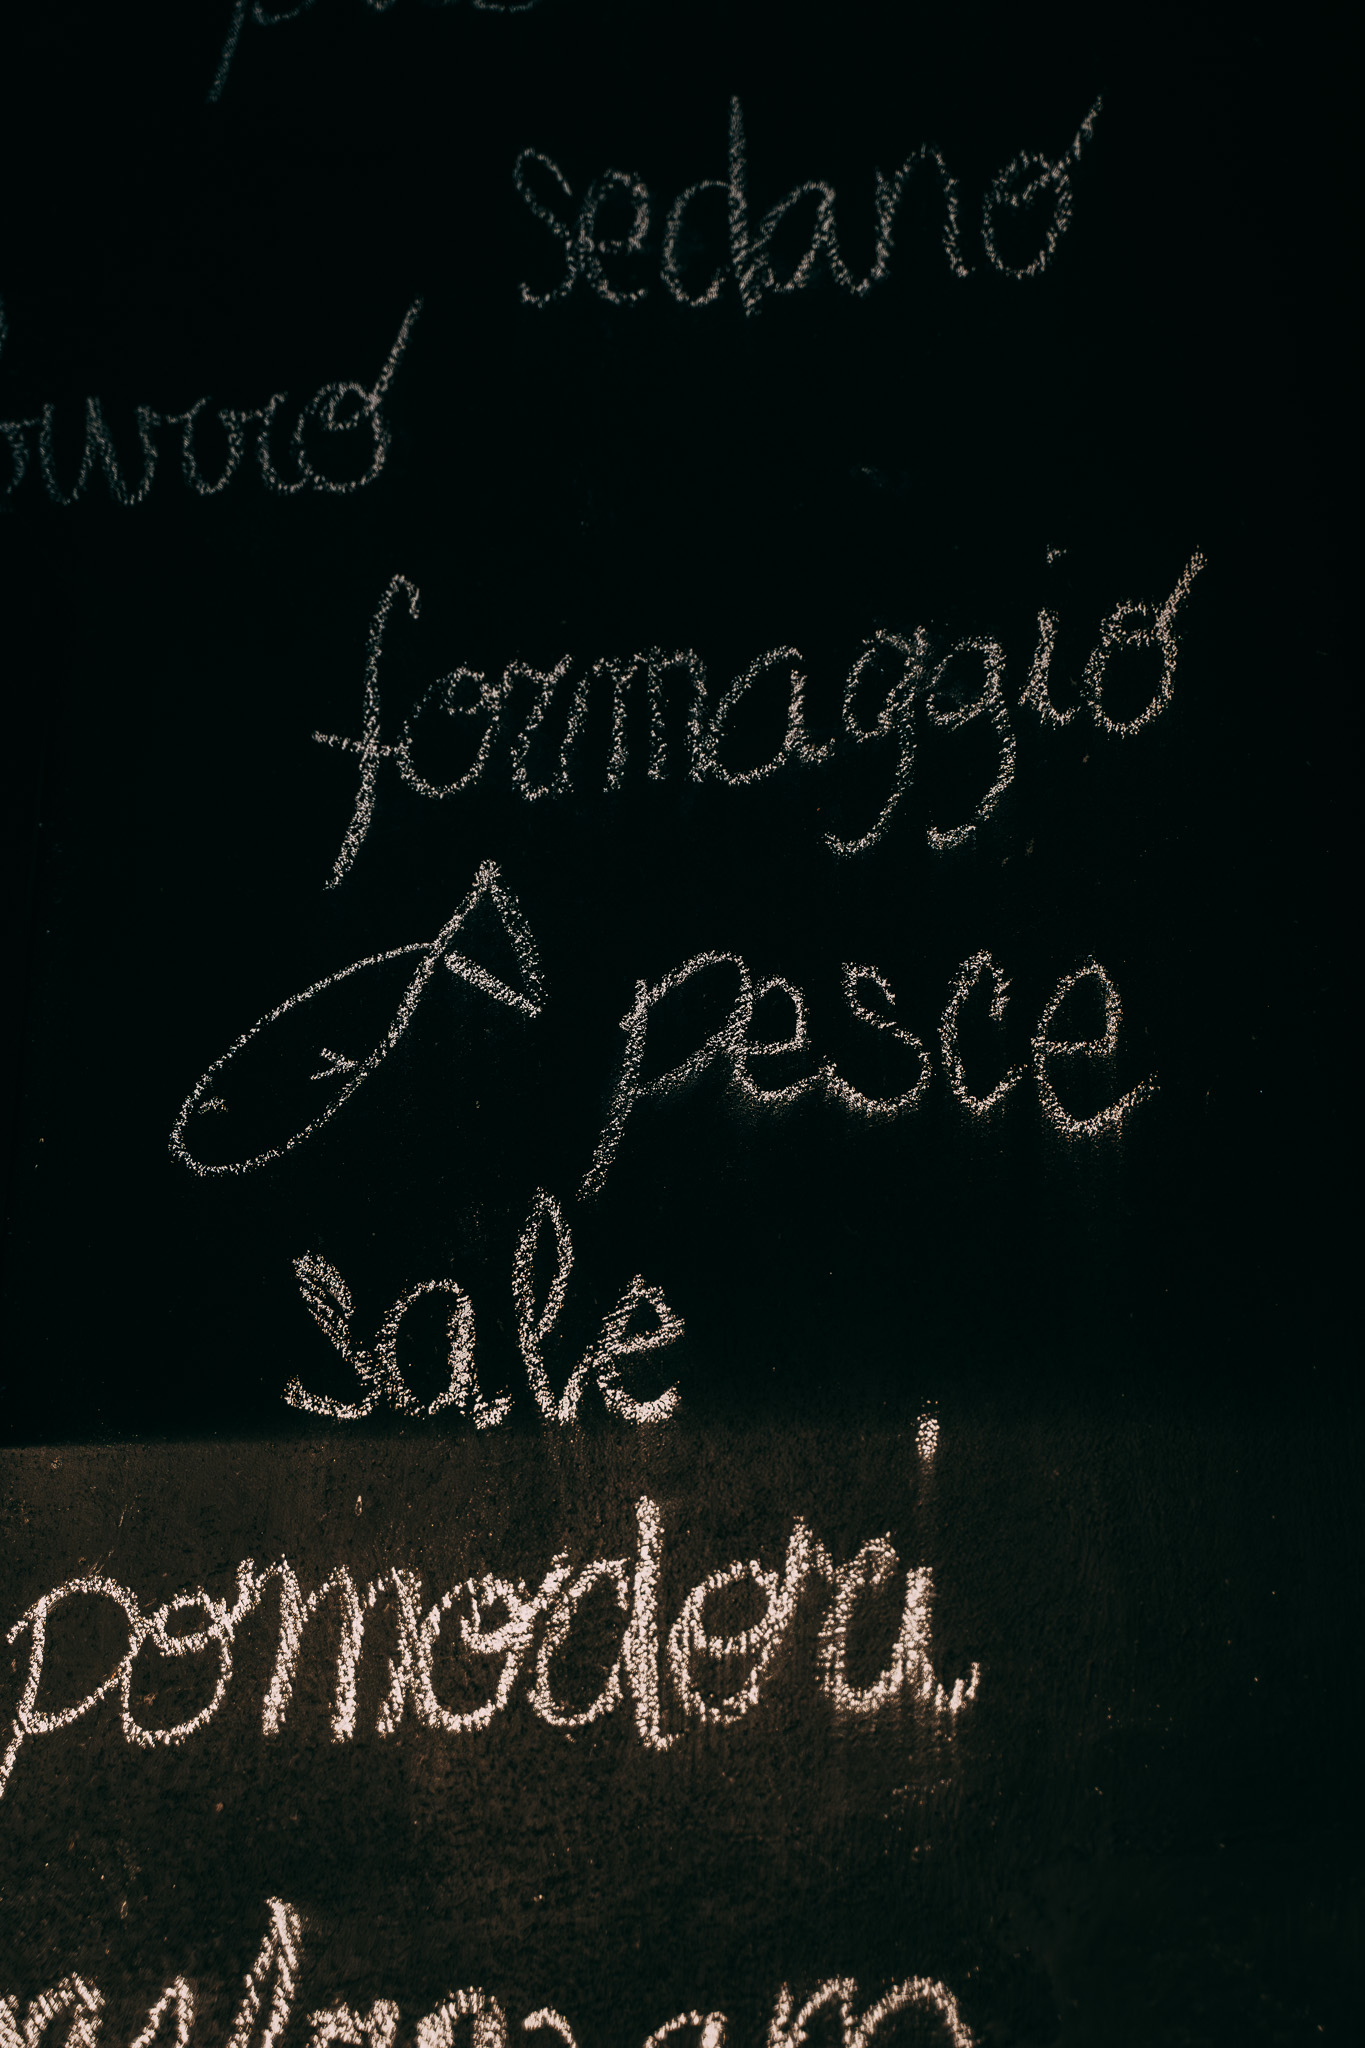 sedano
burro
formaggio
pesce
sale
pomodori